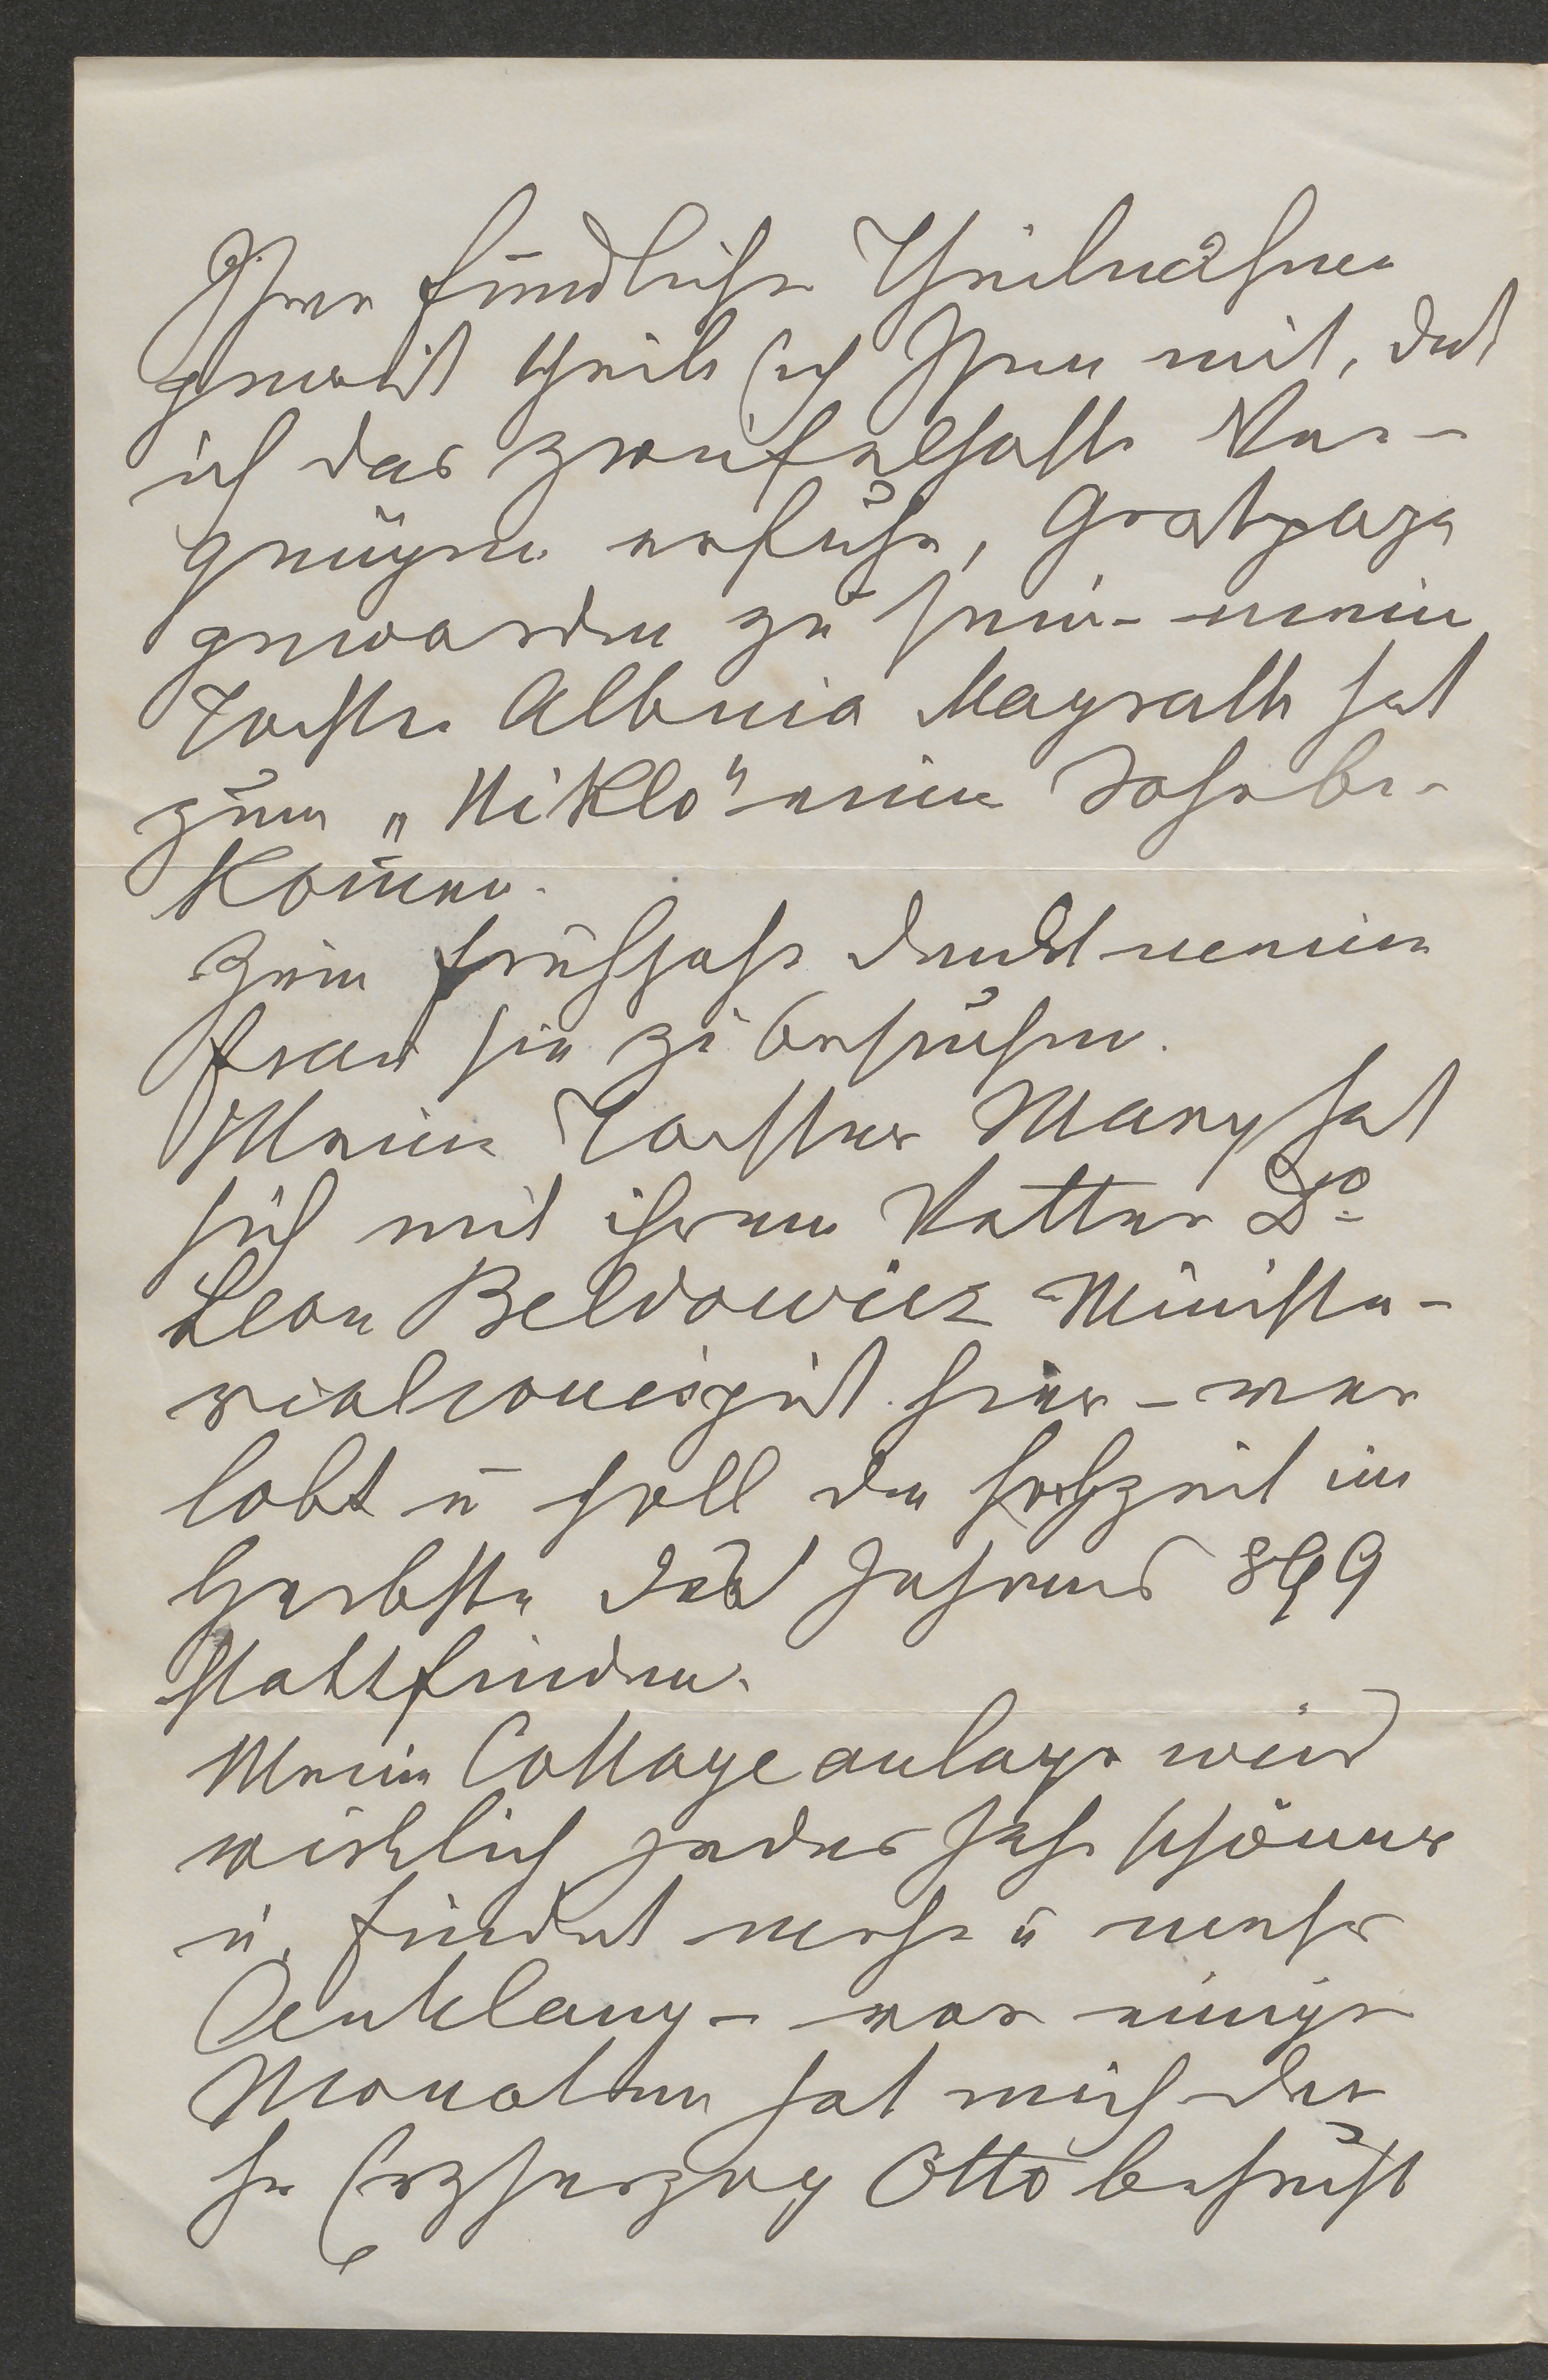 Ihrer freundlichen Theilnahme
gewiß theile ich Ihnen mit, daß
ich das zweifelhafte Ver-
gnügen erfuhr, Grotpapa
geworden zu sein - meine
Tochter Albinia Magrath hat
zum „Niklo" einen Sohn be-
kom̄en.
Zum Frühjahr denkt meine
Frau sie zu besuchen.
Meine Tochter Mary hat
sich mit ihrem Vetter Dr
Leon Beldowicz Ministe-
rialconcipist hier - ver
lobt u soll die Hochzeit im
Herbste des Jahres 899
stattfinden.
Meine Cottageanlage wird
wirklich jedes Jahr schöner
u. findet mehr u mehr
Anklang - vor einige
Monaten hat mich der
Hr Erzherzog Otto besucht